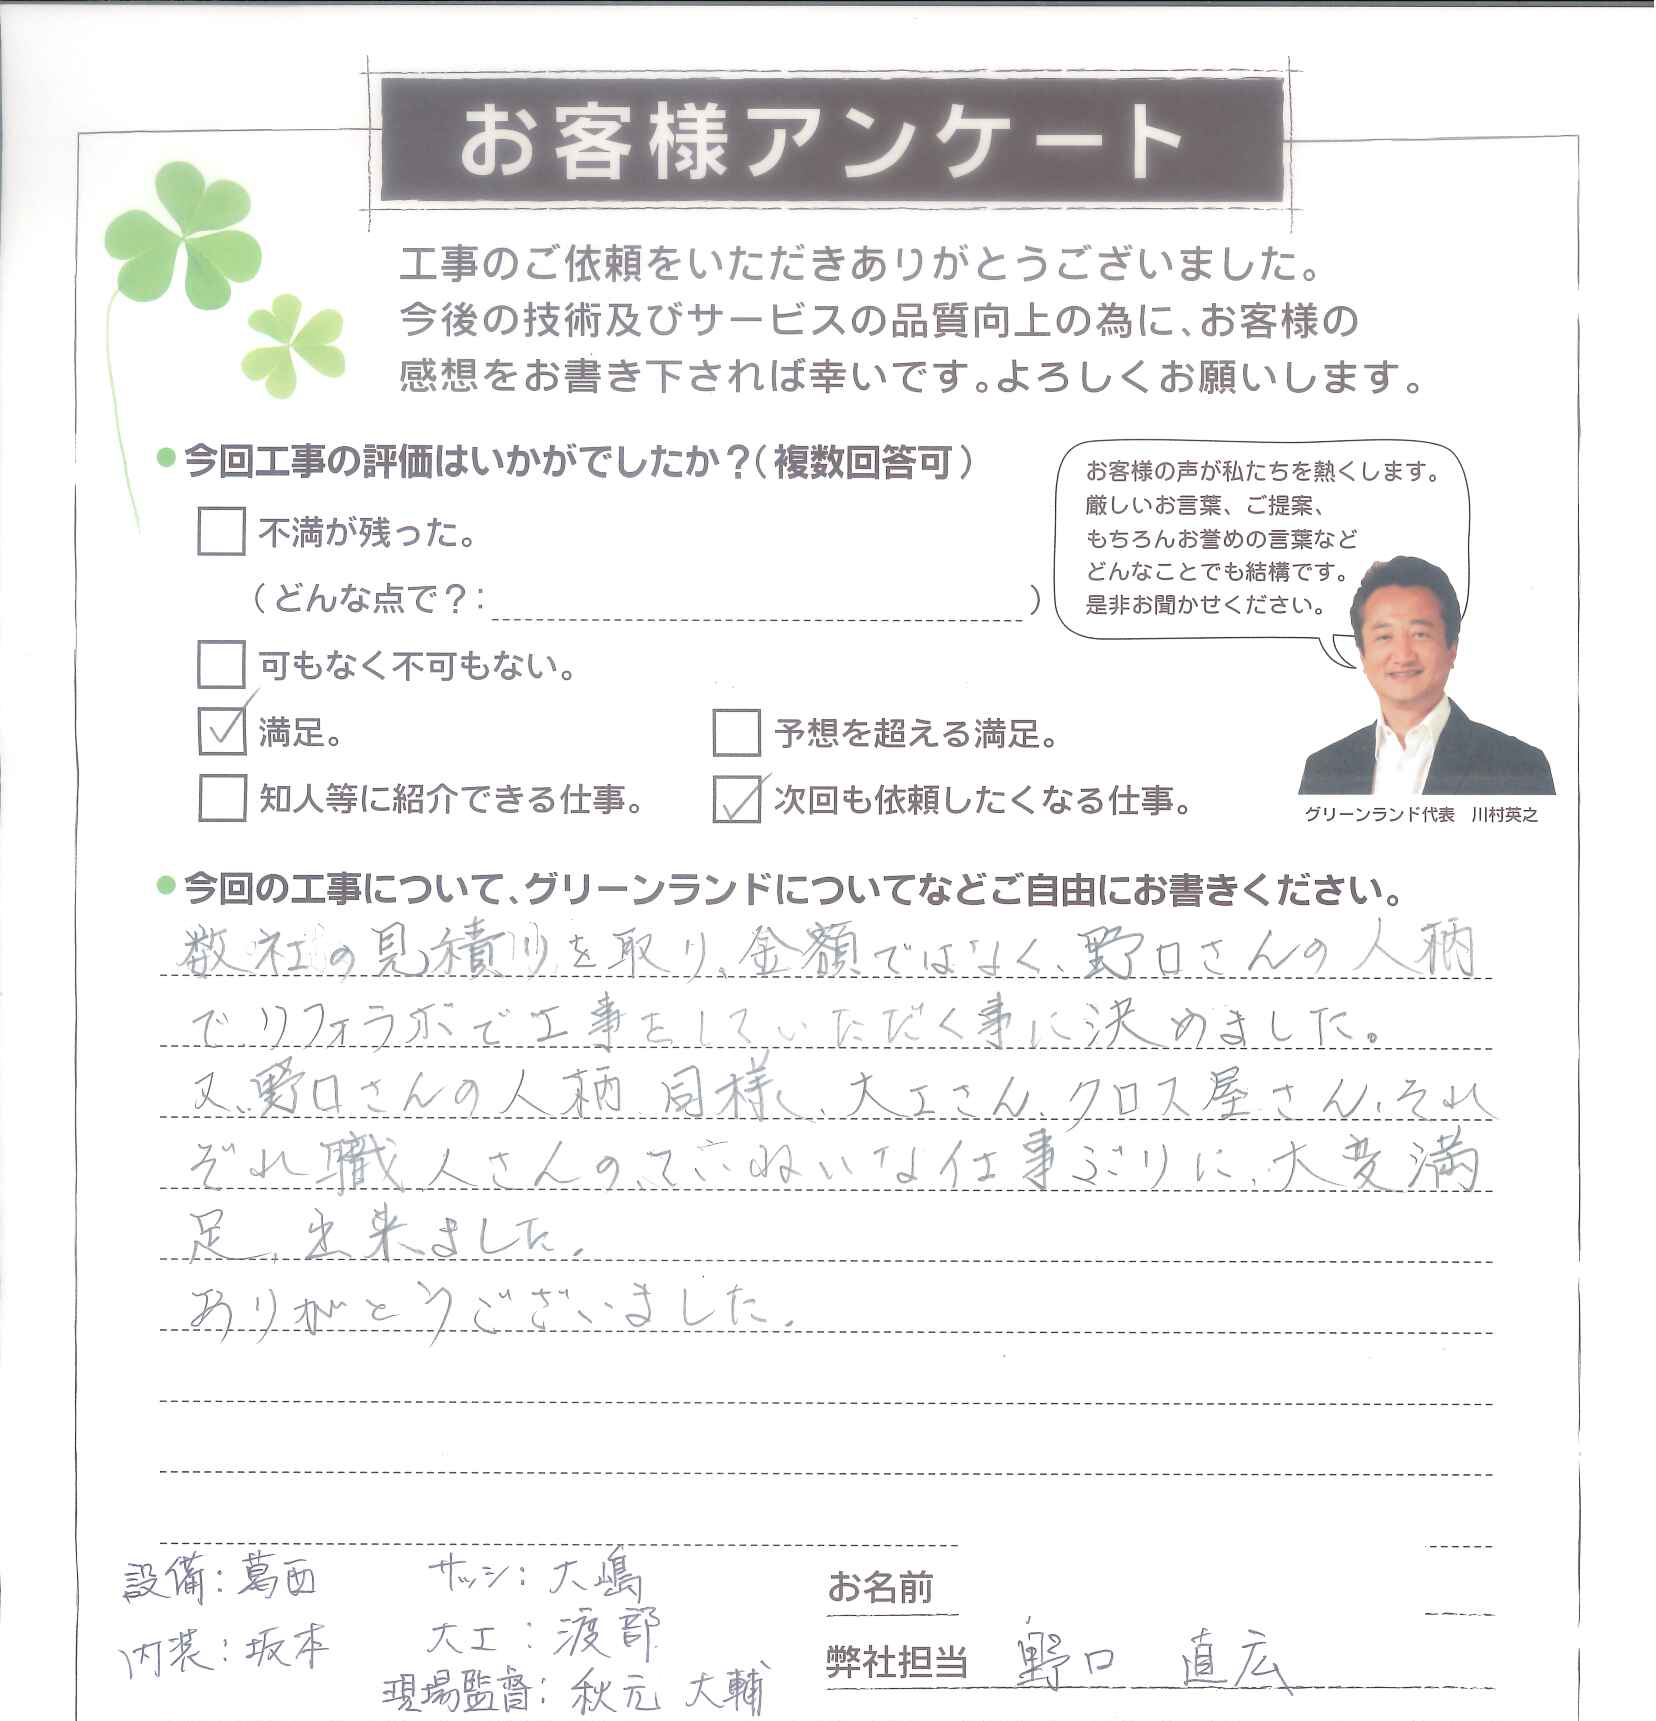 お客様アンケート
工事のご依頼をいただきありがとうございました。
今後の技術及びサービスの品質向上の為に、お客様の
感想をお書き下されば幸いです。よろしくお願いします。
今回工事の評価はいかがでしたか？（複数回答可）
不満が残った。
（どんな点で？：　　）
可もなく不可もない。
満足。
予想を超える満足。
知人等に紹介できる仕事。
次回も依頼したくなる仕事。
お客様の声が私たちを熱くします。
厳しいお言葉、ご提案、
もちろんお誉めの言葉など
どんなことでも結構です。
是非お聞かせください。
グリーンランド代表　川村英之
今回の工事について、グリーンランドについてなどご自由にお書きください。
数社の見積りを取り、金額ではなく、野口さんの人柄
でリフォラボで工事をしていただく事に決めました。
又、野口さんの人柄同様、大工さん、クロス屋さん、それ
ぞれ職人さんの、ていねいな仕事ぶりに、大変満
足、出来ました。
ありがとうございました。
設備：葛西
サッシ：大嶋
内装：坂本
大工：渡部
現場監督：秋元 大輔
お名前
弊社担当 野口 直広